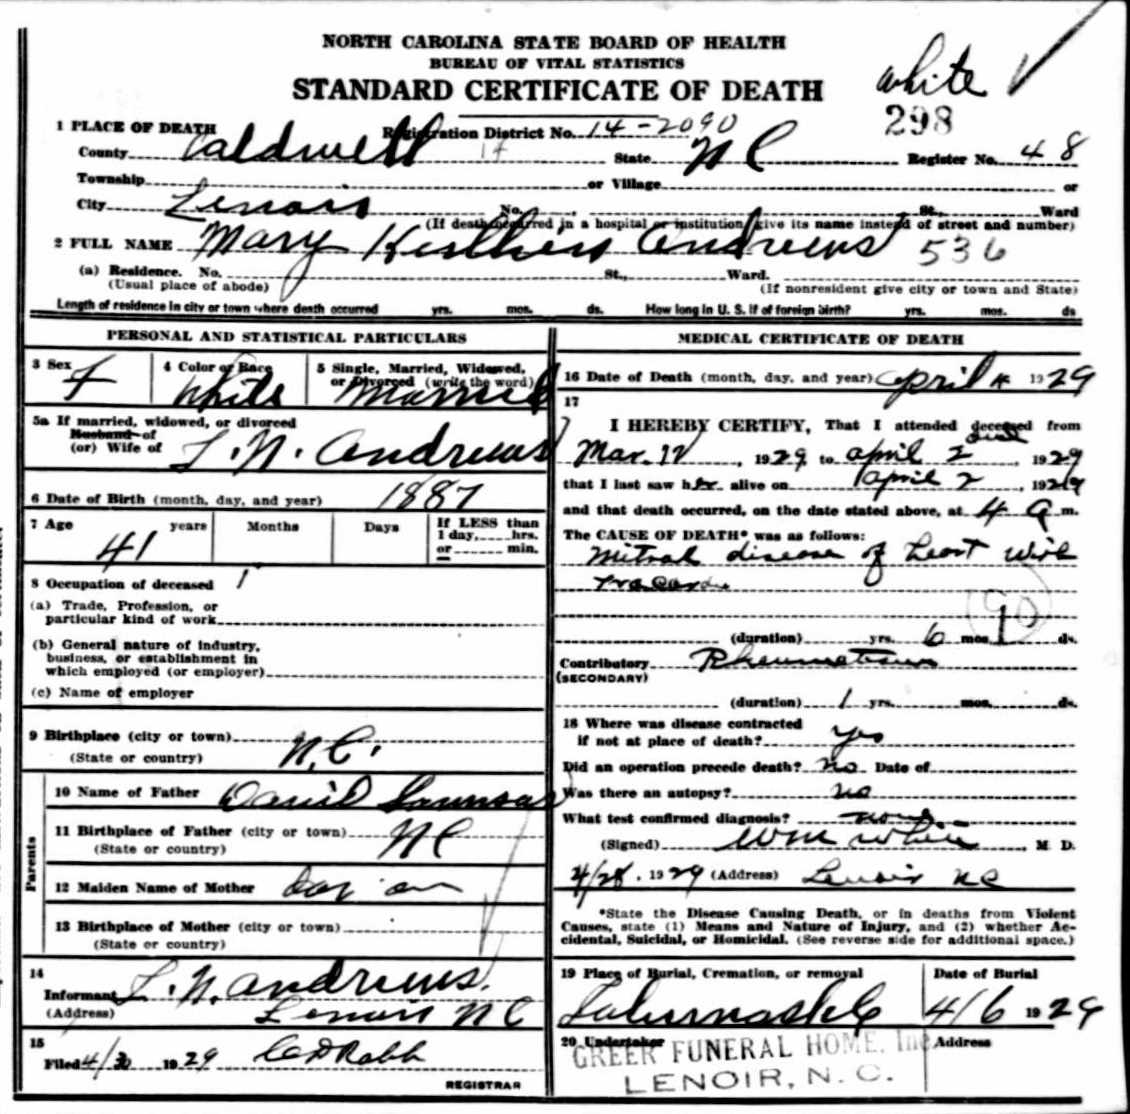 NORTH CAROLINA STATE BOARD OF HEALTH
BUREAU OF VITAL STATISTICS
STANDARD CERTIFICATE OF DEATH
white
298
1 PLACE OF DEATH
Registration District No. 14-2090
County Caldwell 14 State N C Register No. 48
Township or Village or
City Lenoir No. St., Ward
(If death occurred in a hospital or institution give its name instead of street and number)
2 FULL NAME Mary Andrews 536
(a) Residence. No. St., Ward.
(Usual place of abode) (If nonresident give city or town and State)
Length of residence in city or town where death occurred yrs. mos. ds. How long in U. S. if of foreign birth? yrs. mos. ds
PERSONAL AND STATISTICAL PARTICULARS
3 Sex F
4 Color or Race White
5 Single, Married, Widowed, or Divorced (write the word) Married
5a If married, widowed, or divorced
Husband of
(or) Wife of L. N. Andrews
6 Date of Birth (month, day, and year) 1887
7 Age 41 years Months Days If LESS than 1 day, hrs. or min.
8 Occupation of deceased
(a) Trade, Profession, or
particular kind of work
(b) General nature of industry,
business, or establishment in
which employed (or employer)
(c) Name of employer
9 Birthplace (city or town)
(State or country) N.C.
10 Name of Father David
11 Birthplace of Father (city or town) NC
(State or country)
12 Maiden Name of Mother
13 Birthplace of Mother (city or town)
(State or country)
Parents
14
Informant L. N. Andrews.
(Address) Lenoir N C
15
Filed 4/30 1929 C D Rabb
REGISTRAR
MEDICAL CERTIFICATE OF DEATH
16 Date of Death (month, day, and year) April 4 1929
17
I HEREBY CERTIFY, That I attended deceased from
Mar. 12, 1929, to April 2, 1929
that I last saw her alive on April 2, 1929
and that death occurred, on the date stated above, at 4 a m.
The CAUSE OF DEATH* was as follows:
Mitral disease of heart with
90
(duration) yrs. 6 mos. ds.
Contributory Rheumatism
(SECONDARY)
(duration) 1 yrs. mos. ds.
18 Where was disease contracted
if not at place of death? yes
Did an operation precede death? no Date of
Was there an autopsy? no
What test confirmed diagnosis? none
(Signed) Wm White, M D.
4/28, 1929 (Address) Lenoir NC
*State the Disease Causing Death, or in deaths from Violent
Causes, state (1) Means and Nature of Injury, and (2) whether Ac-
cidental, Suicidal, or Homicidal. (See reverse side for additional space.)
19 Place of Burial, Cremation, or removal Date of Burial
4/6 1929
20 Undertaker Address
GREER FUNERAL HOME, Inc
LENOIR, N. C.